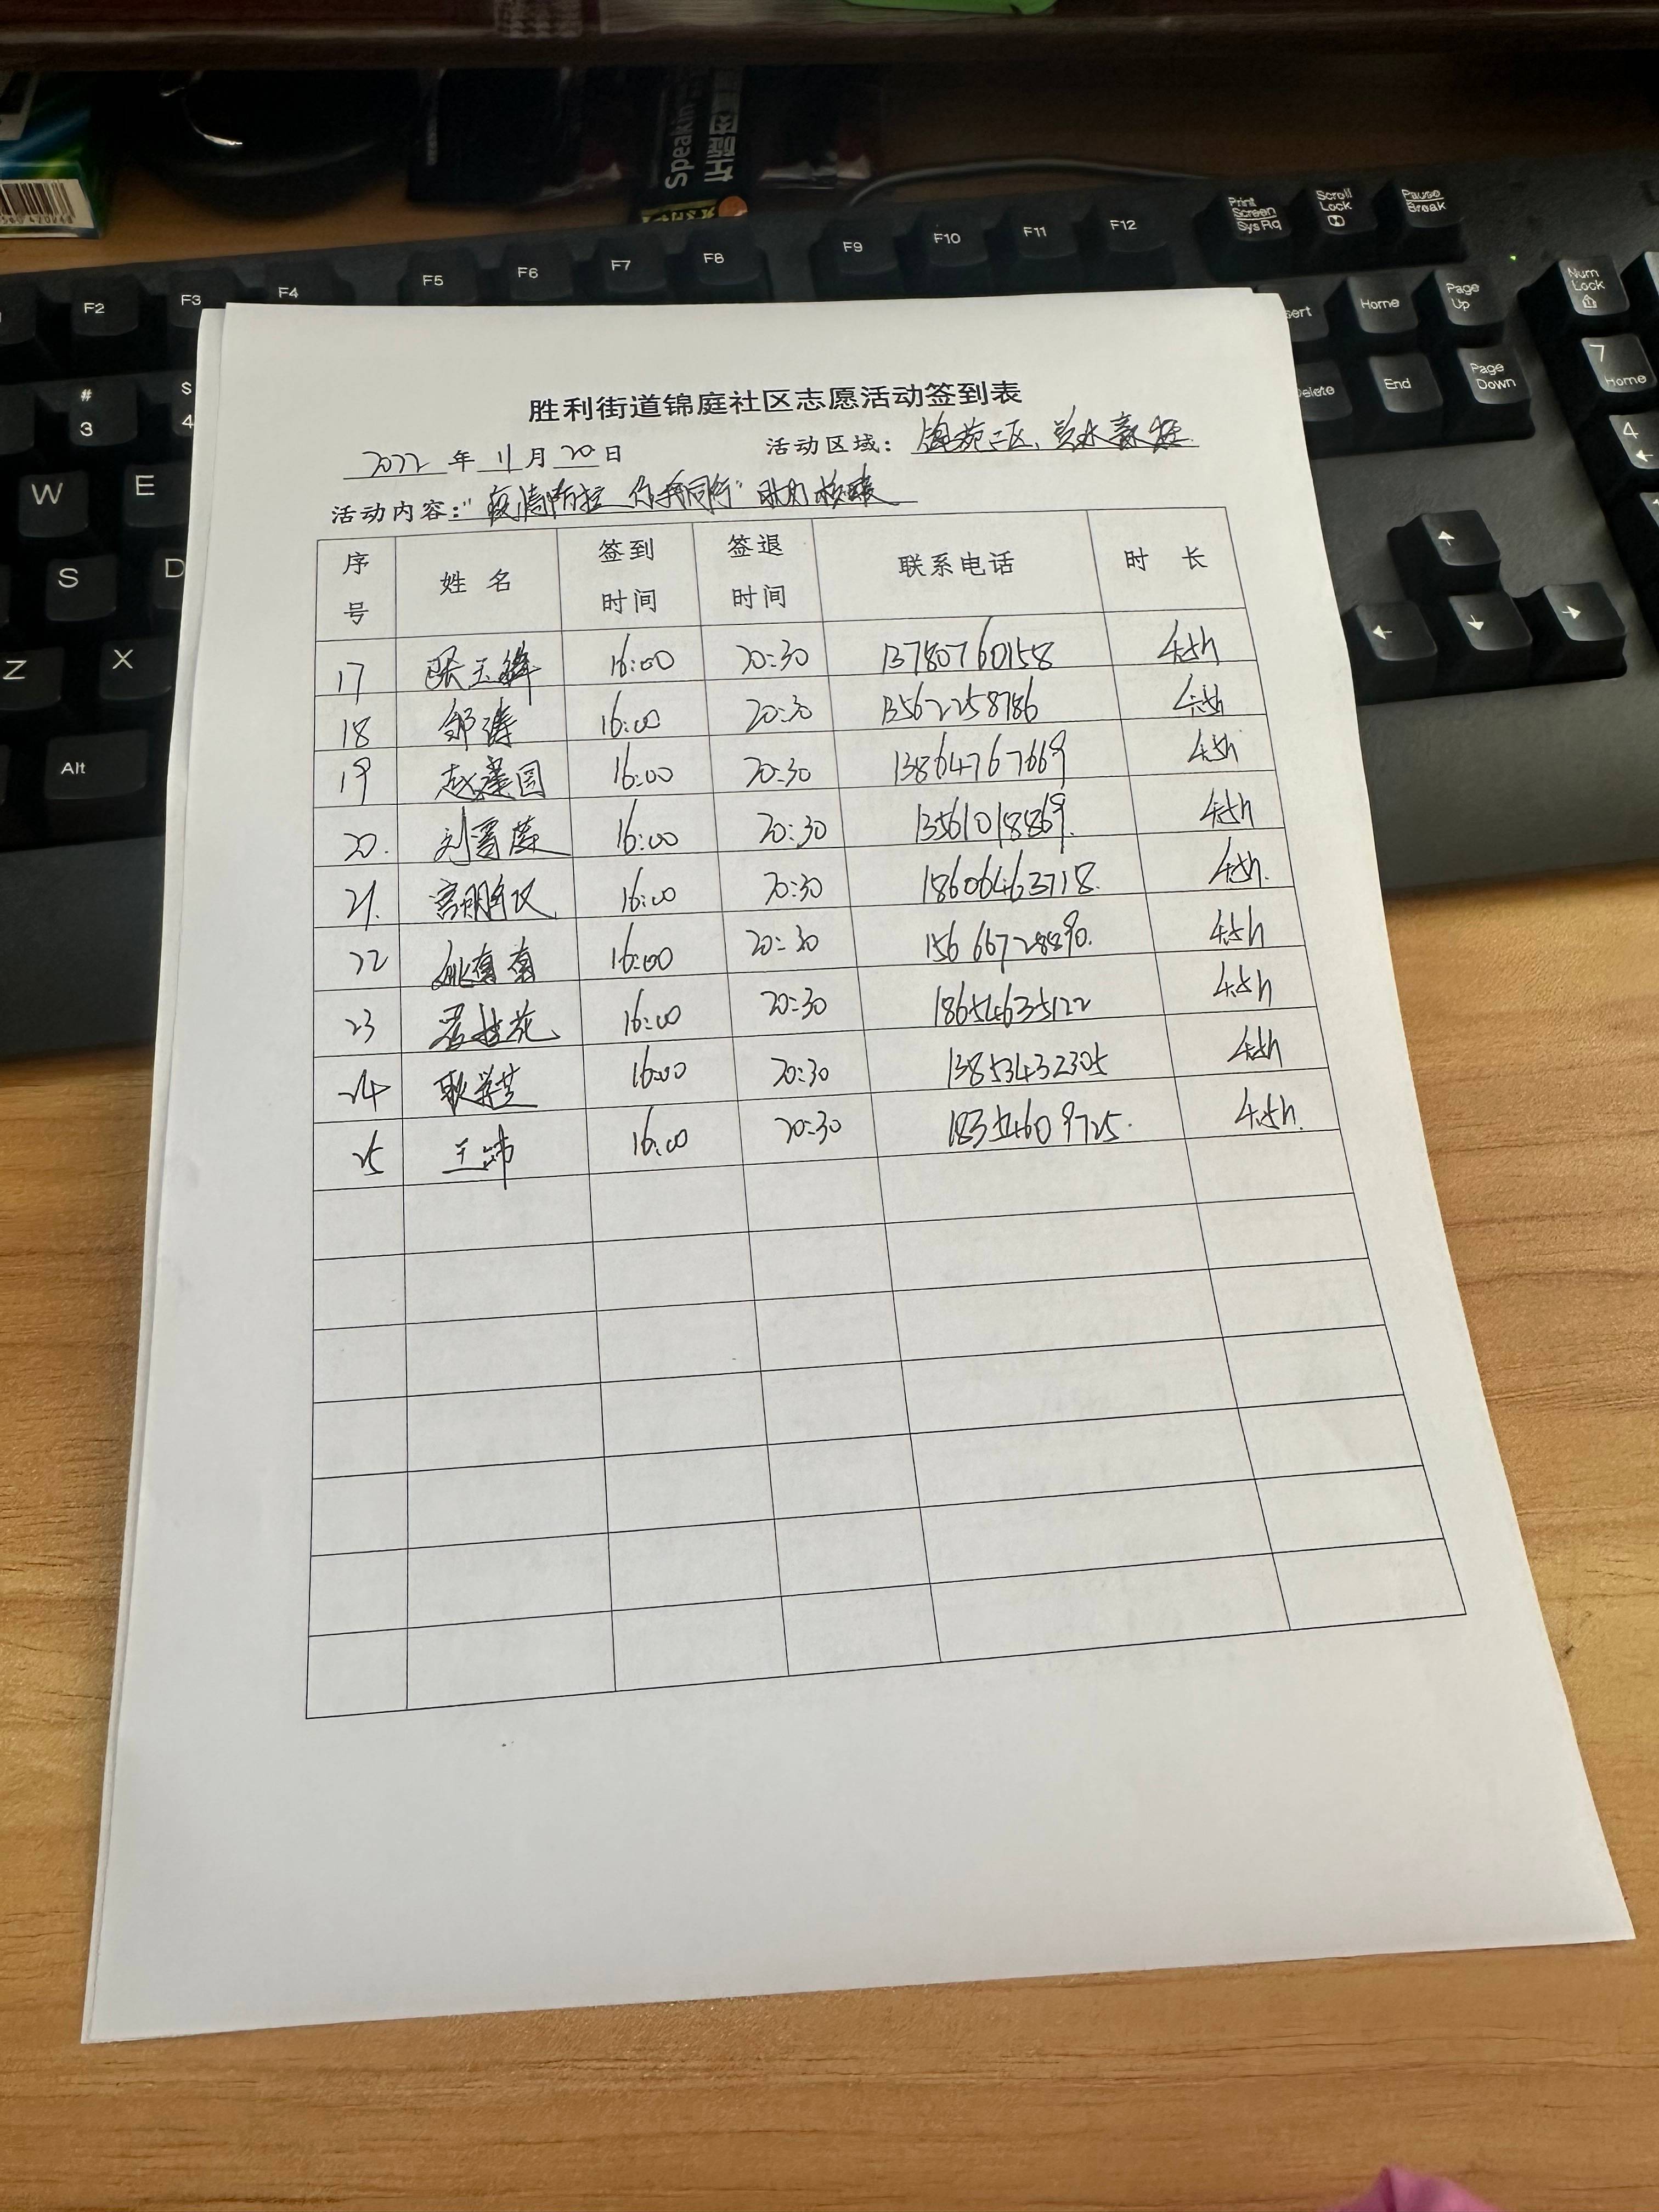 Speakin
F2 F3 F4 F5 F6 F7 F8 F9 F10 F11 F12
Print Screen SysRq
Scroll Lock
Pause Break
Home
Page Up
Num Lock
End
Page Down
7 Home
4
# 3
$ 4
W E
S D
Z X
Alt
胜利街道锦庭社区志愿活动签到表
2022 年 11 月 20 日 活动区域: 二区、
活动内容: "疫情防控 你我同行" 助力核酸
序号 姓名 签到时间 签退时间 联系电话 时长
17 张玉锋 16:00 20:30 13780760158 4.5h
18 邹涛 16:00 20:30 13562258786 4.5h
19 赵建国 16:00 20:30 13864767669 4.5h
20. 刘 16:00 20:30 13561018869. 4.5h
21. 宫明 16:00 20:30 18606463718. 4.5h.
22 姚 16:00 20:30 15666728890. 4.5h
23 桂花 16:00 20:30 18654635122 4.5h
24 耿 16:00 20:30 13853432305 4.5h
25 王 16:00 20:30 18354609725. 4.5h.